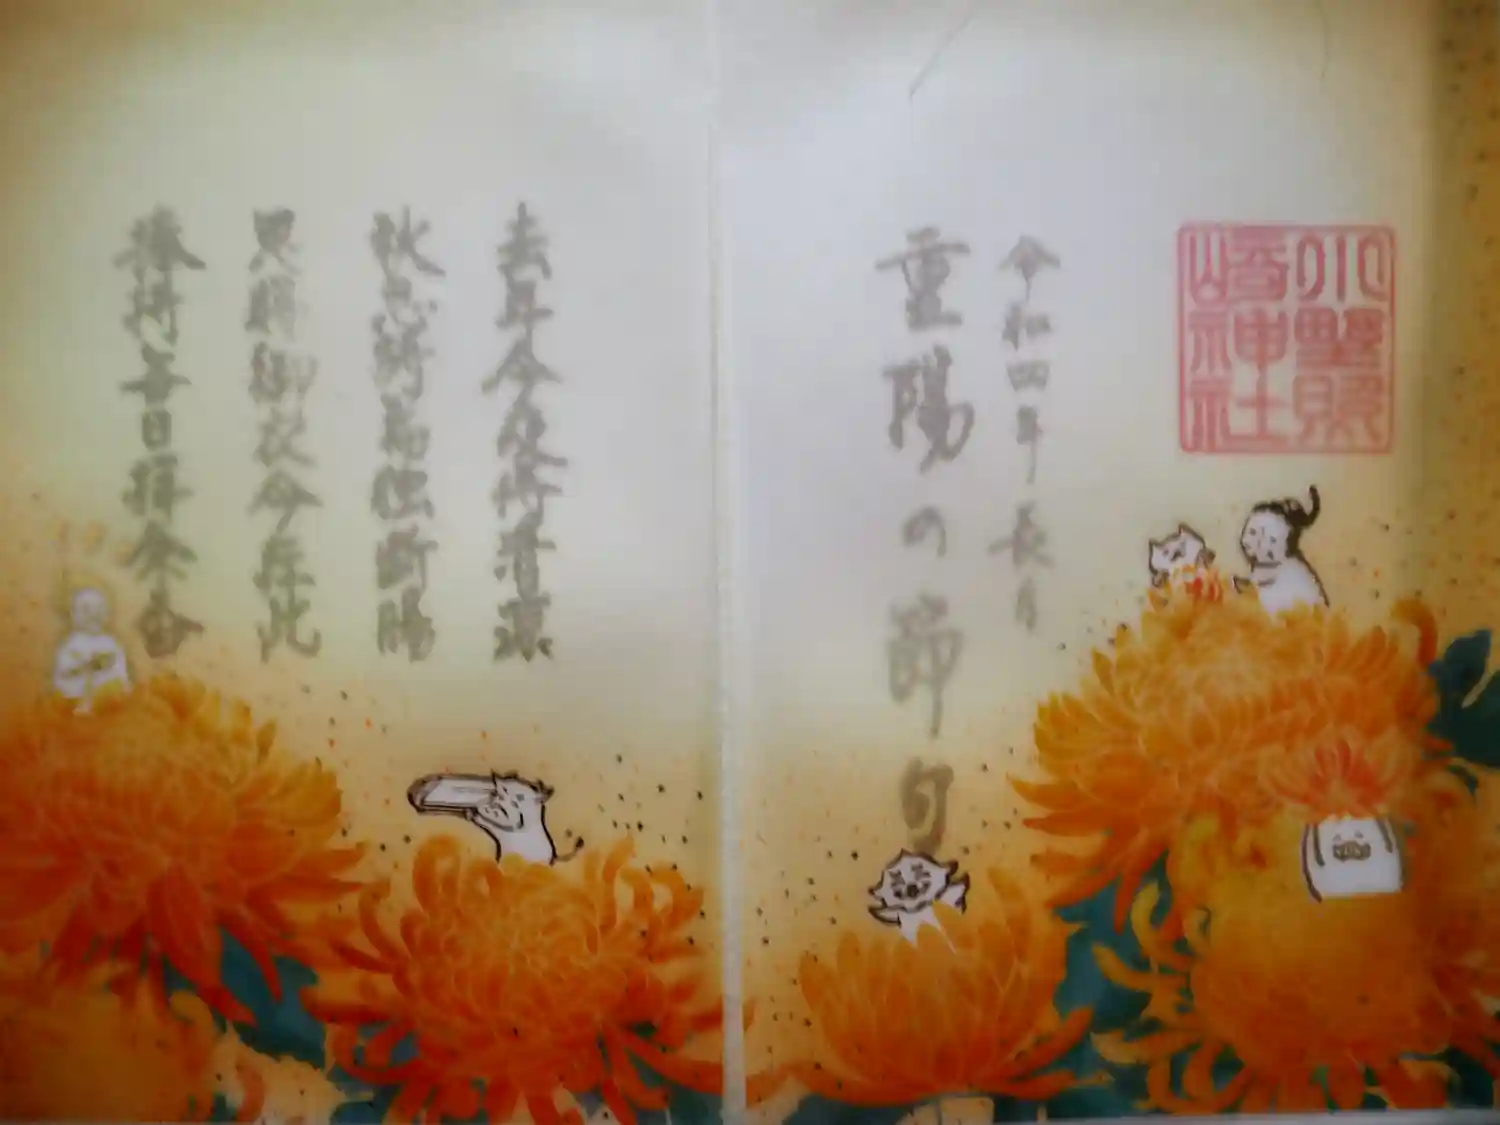 小野照
崎神社
令和四年長月
重陽の節句
去年今夜侍清涼
秋思詩篇独断腸
恩賜御衣今在此
捧持毎日拝余香